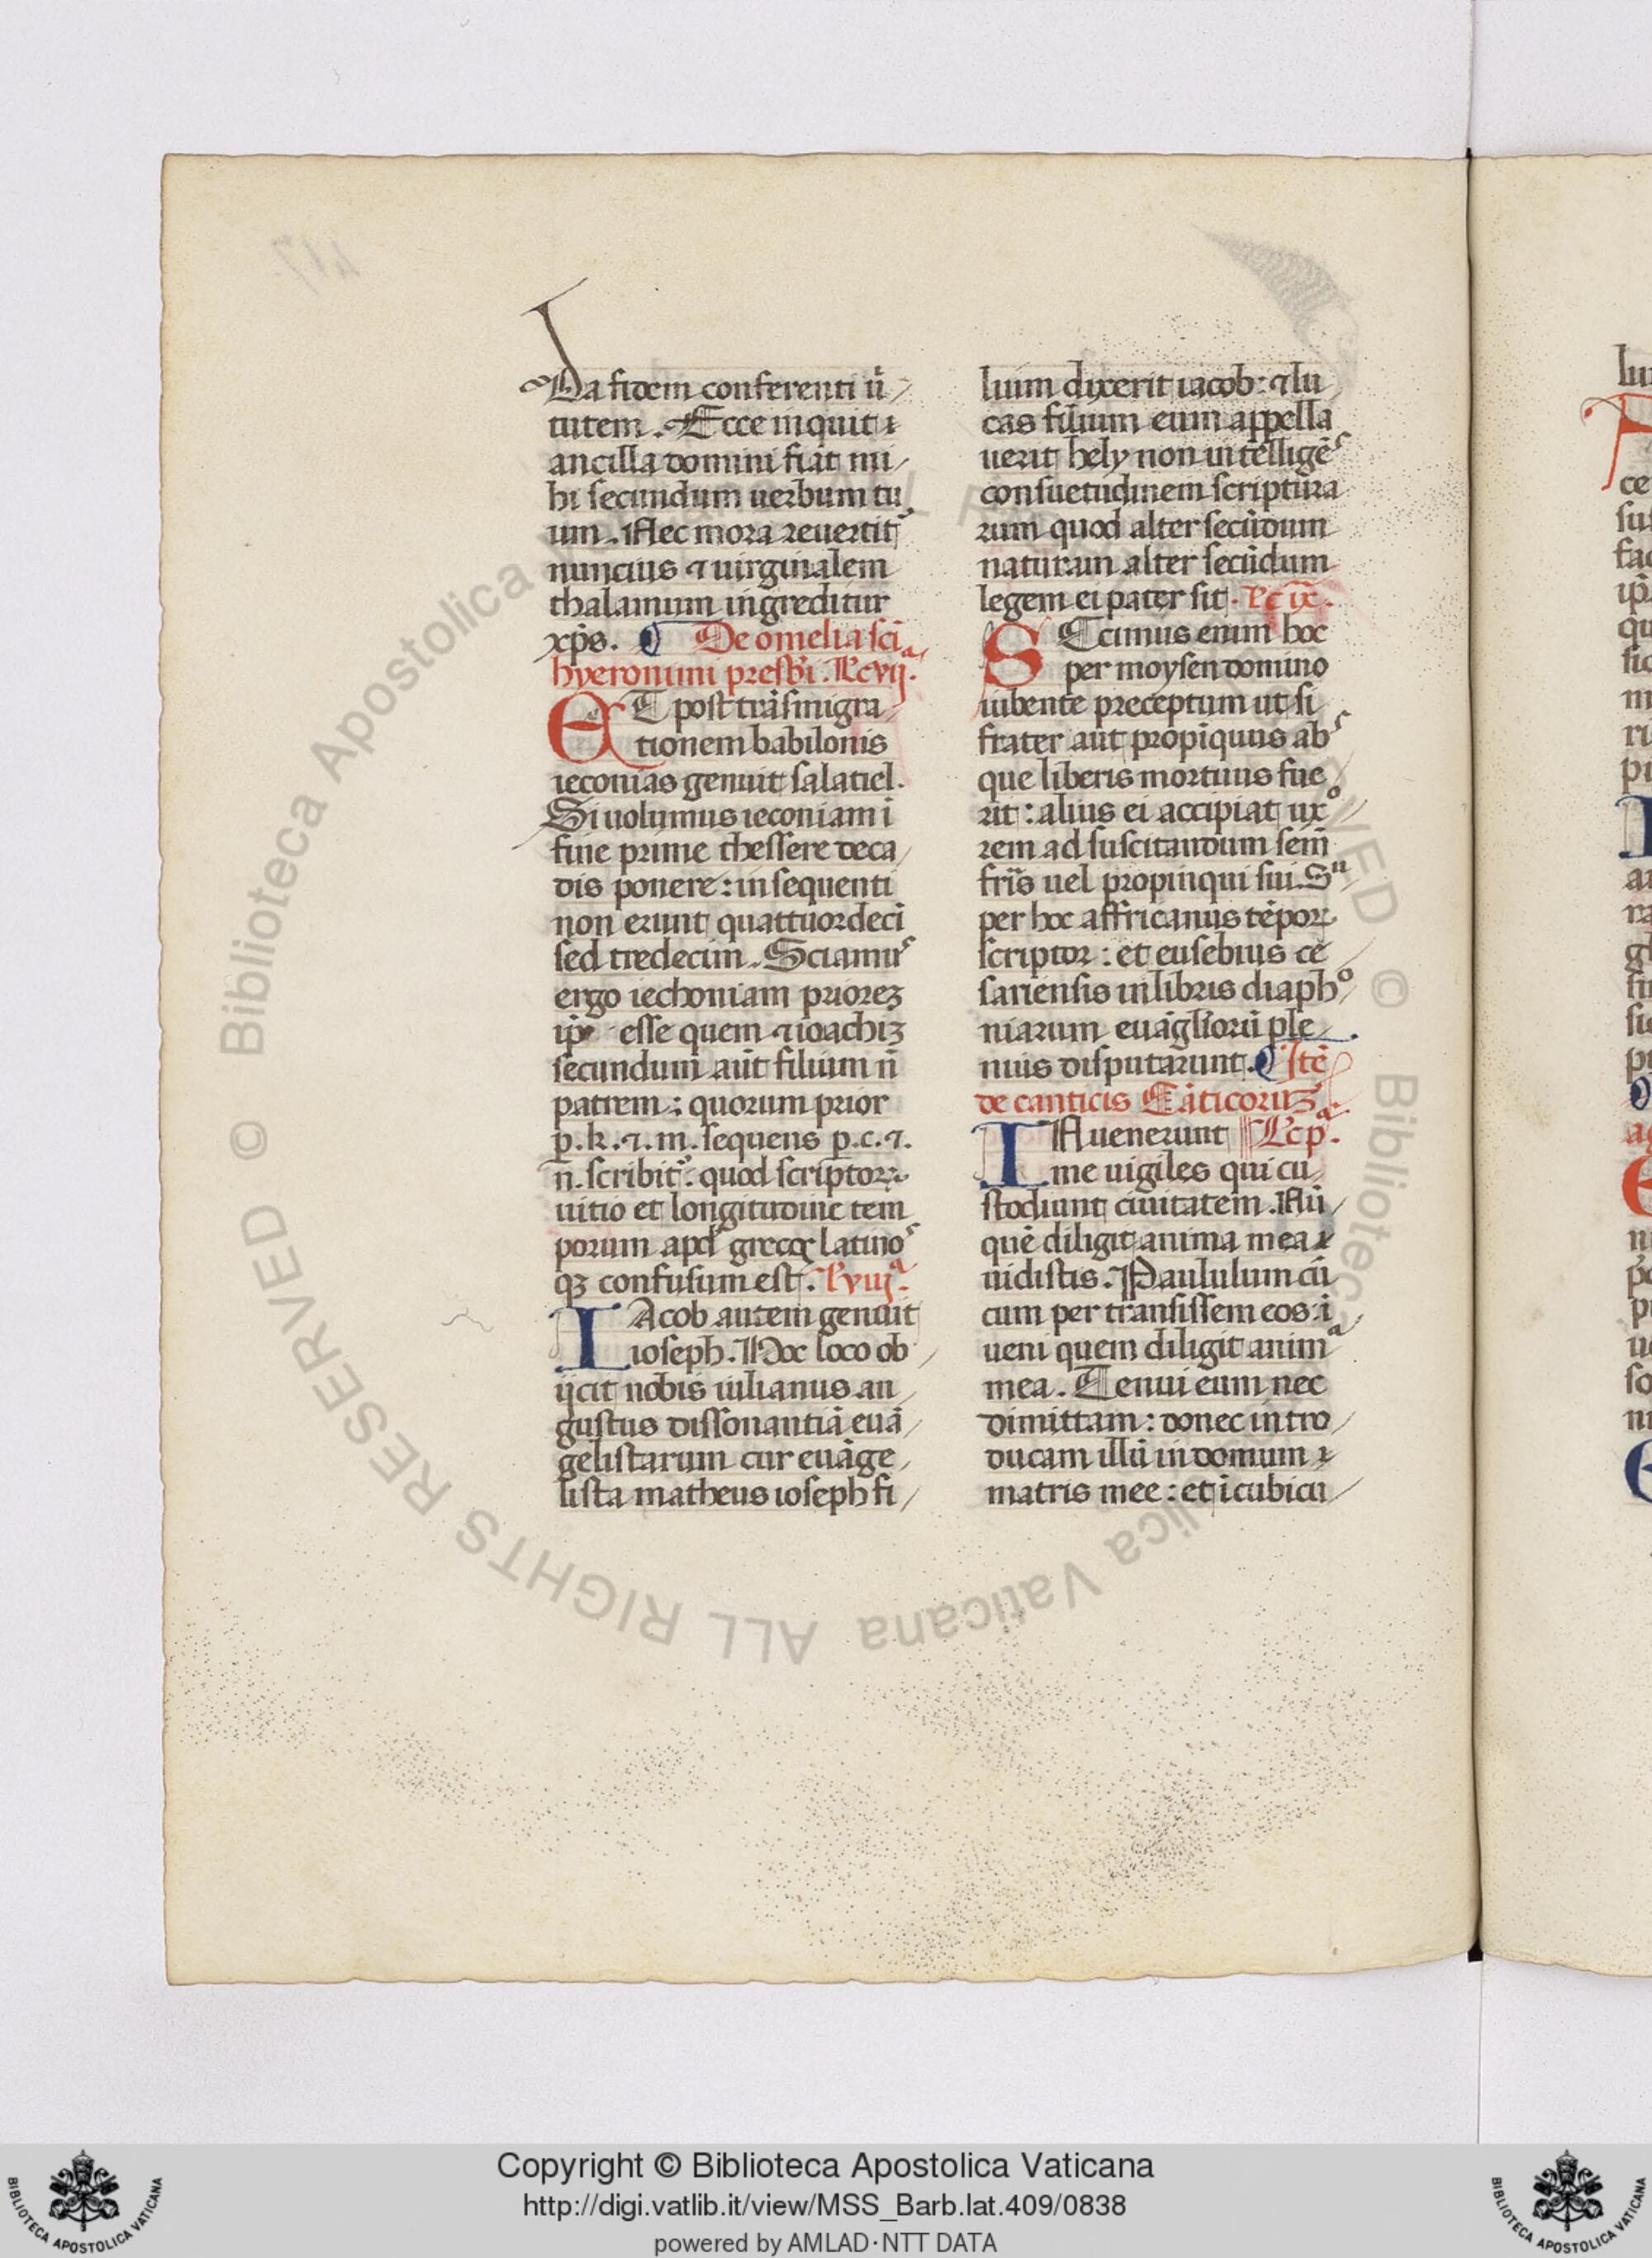 Da fidem conferenti ũ
tutem. Ecce inquit
ancilla domini fiat mi
hi secundum uerbum tu
um. Nec mora reuertit᷑
nuncius ⁊ uirginalem
thalamum ingreditur
xp̃s. De omelia sc̃i
hyeronimi presb̃i. Lc vij.
ET post trãsmigra
tionem babilonis
ieconias genuit salatiel.
Si uolumus ieconiam ĩ
fine prime thessere deca
dis ponere: in sequenti
non erunt quattuordecĩ
sed tredecim. Sciamus
ergo iechoniam priorez
ip̃ esse quem ⁊ ioachiz
secundum aũt filium ñ
patrem: quorum prior
p.k.⁊.m. sequens p.c.⁊.
n. scribit᷑: quod scriptoꝝ
uitio et longitudine tem
porum apd̓ grecoꝝ latino
qꝫ confusum est. L viij.
IAcob autem genuit
ioseph. Hoc loco ob
ijcit nobis iulianus au
gustus dissonantiã euã
gelistarum cur euãge
lista matheus ioseph fi
lium dixerit iacob: ⁊ lu
cas filium eum appella
uerit hely non intelligẽs
consuetudinem scriptura
rum quod alter secũdum
naturam alter secũdum
legem ei pater sit. Lc ix.
SCimus enim hoc
per moysen domino
iubente preceptum ut si
frater aut propiquus abs
que liberis mortuus fue
rit: alius ei accipiat uxo
rem ad suscitandum sem̃
fris̃ uel propinqui sui. Su
per hoc affricanus tẽporꝝ
scriptor: et eusebius ce
sariensis in libris diapho
niarum euãglĩorũ ple
nius disputarunt. Itẽ
de canticis Cãticoruz
INuenerunt Lc p.ª
me uigiles qui cu
stodiunt ciuitatem. Nũ
quẽ diligit anima mea
uidistis. Paululum cũ
cum per transissem eos ĩ
ueni quem diligit anima
mea. Tenui eum nec
dimittam: donec intro
ducam illũ in domum
matris mee: et ĩ cubicu
Copyright © Biblioteca Apostolica Vaticana
http://digi.vatlib.it/view/MSS_Barb.lat.409/0838
powered by AMLAD·NTT DATA
BIBLIOTECA APOSTOLICA VATICANA
BIBLIOTECA APOSTOLICA VATICANA
© Biblioteca Apostolica Vaticana ALL RIGHTS RESERVED